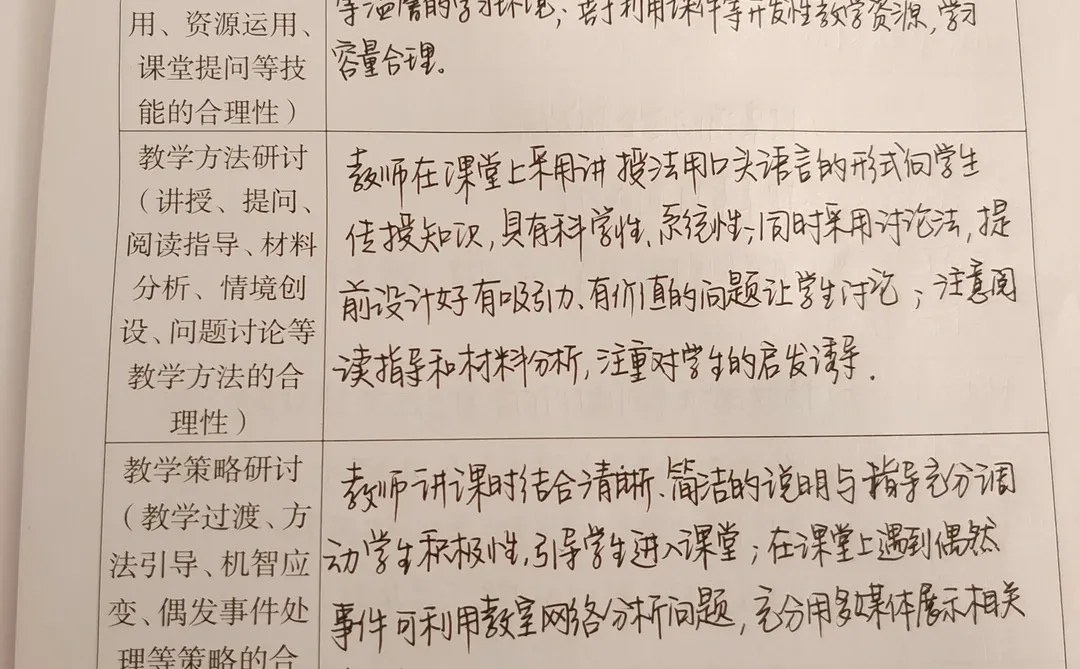 用、资源运用、
课堂提问等技
能的合理性）
等温馨的学习环境；善于利用课件等开发性教学资源，学习
容量合理。
教学方法研讨
（讲授、提问、
阅读指导、材料
分析、情境创
设、问题讨论等
教学方法的合
理性）
教师在课堂上采用讲授法用口头语言的形式向学生
传授知识，具有科学性、系统性；同时采用讨论法，提
前设计好有吸引力、有价值的问题让学生讨论；注意阅
读指导和材料分析，注重对学生的启发诱导.
教学策略研讨
（教学过渡、方
法引导、机智应
变、偶发事件处
理等策略的合
教师讲课时结合清晰、简洁的说明与指导充分调
动学生积极性，引导学生进入课堂；在课堂上遇到偶然
事件可利用教室网络分析问题，充分用多媒体展示相关